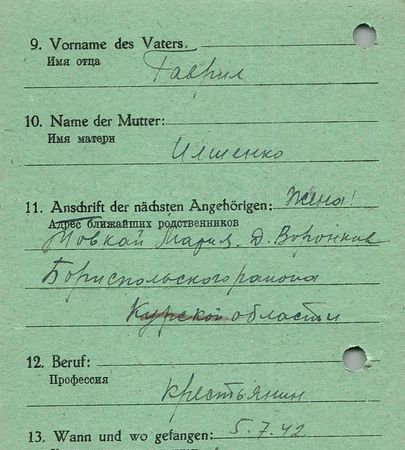 9. Vorname des Vaters.
Имя отца
Гаврил
10. Name der Mutter:
Имя матери
Илшенко
11. Anschrift der nächsten Angehörigen: Жена!
Адрес ближайших родственников
Товкай Мария. Д. Воронков
Бориспольского района
Курской области
12. Beruf:
Профессия
крестьянин
13. Wann und wo gefangen: 5.7.42